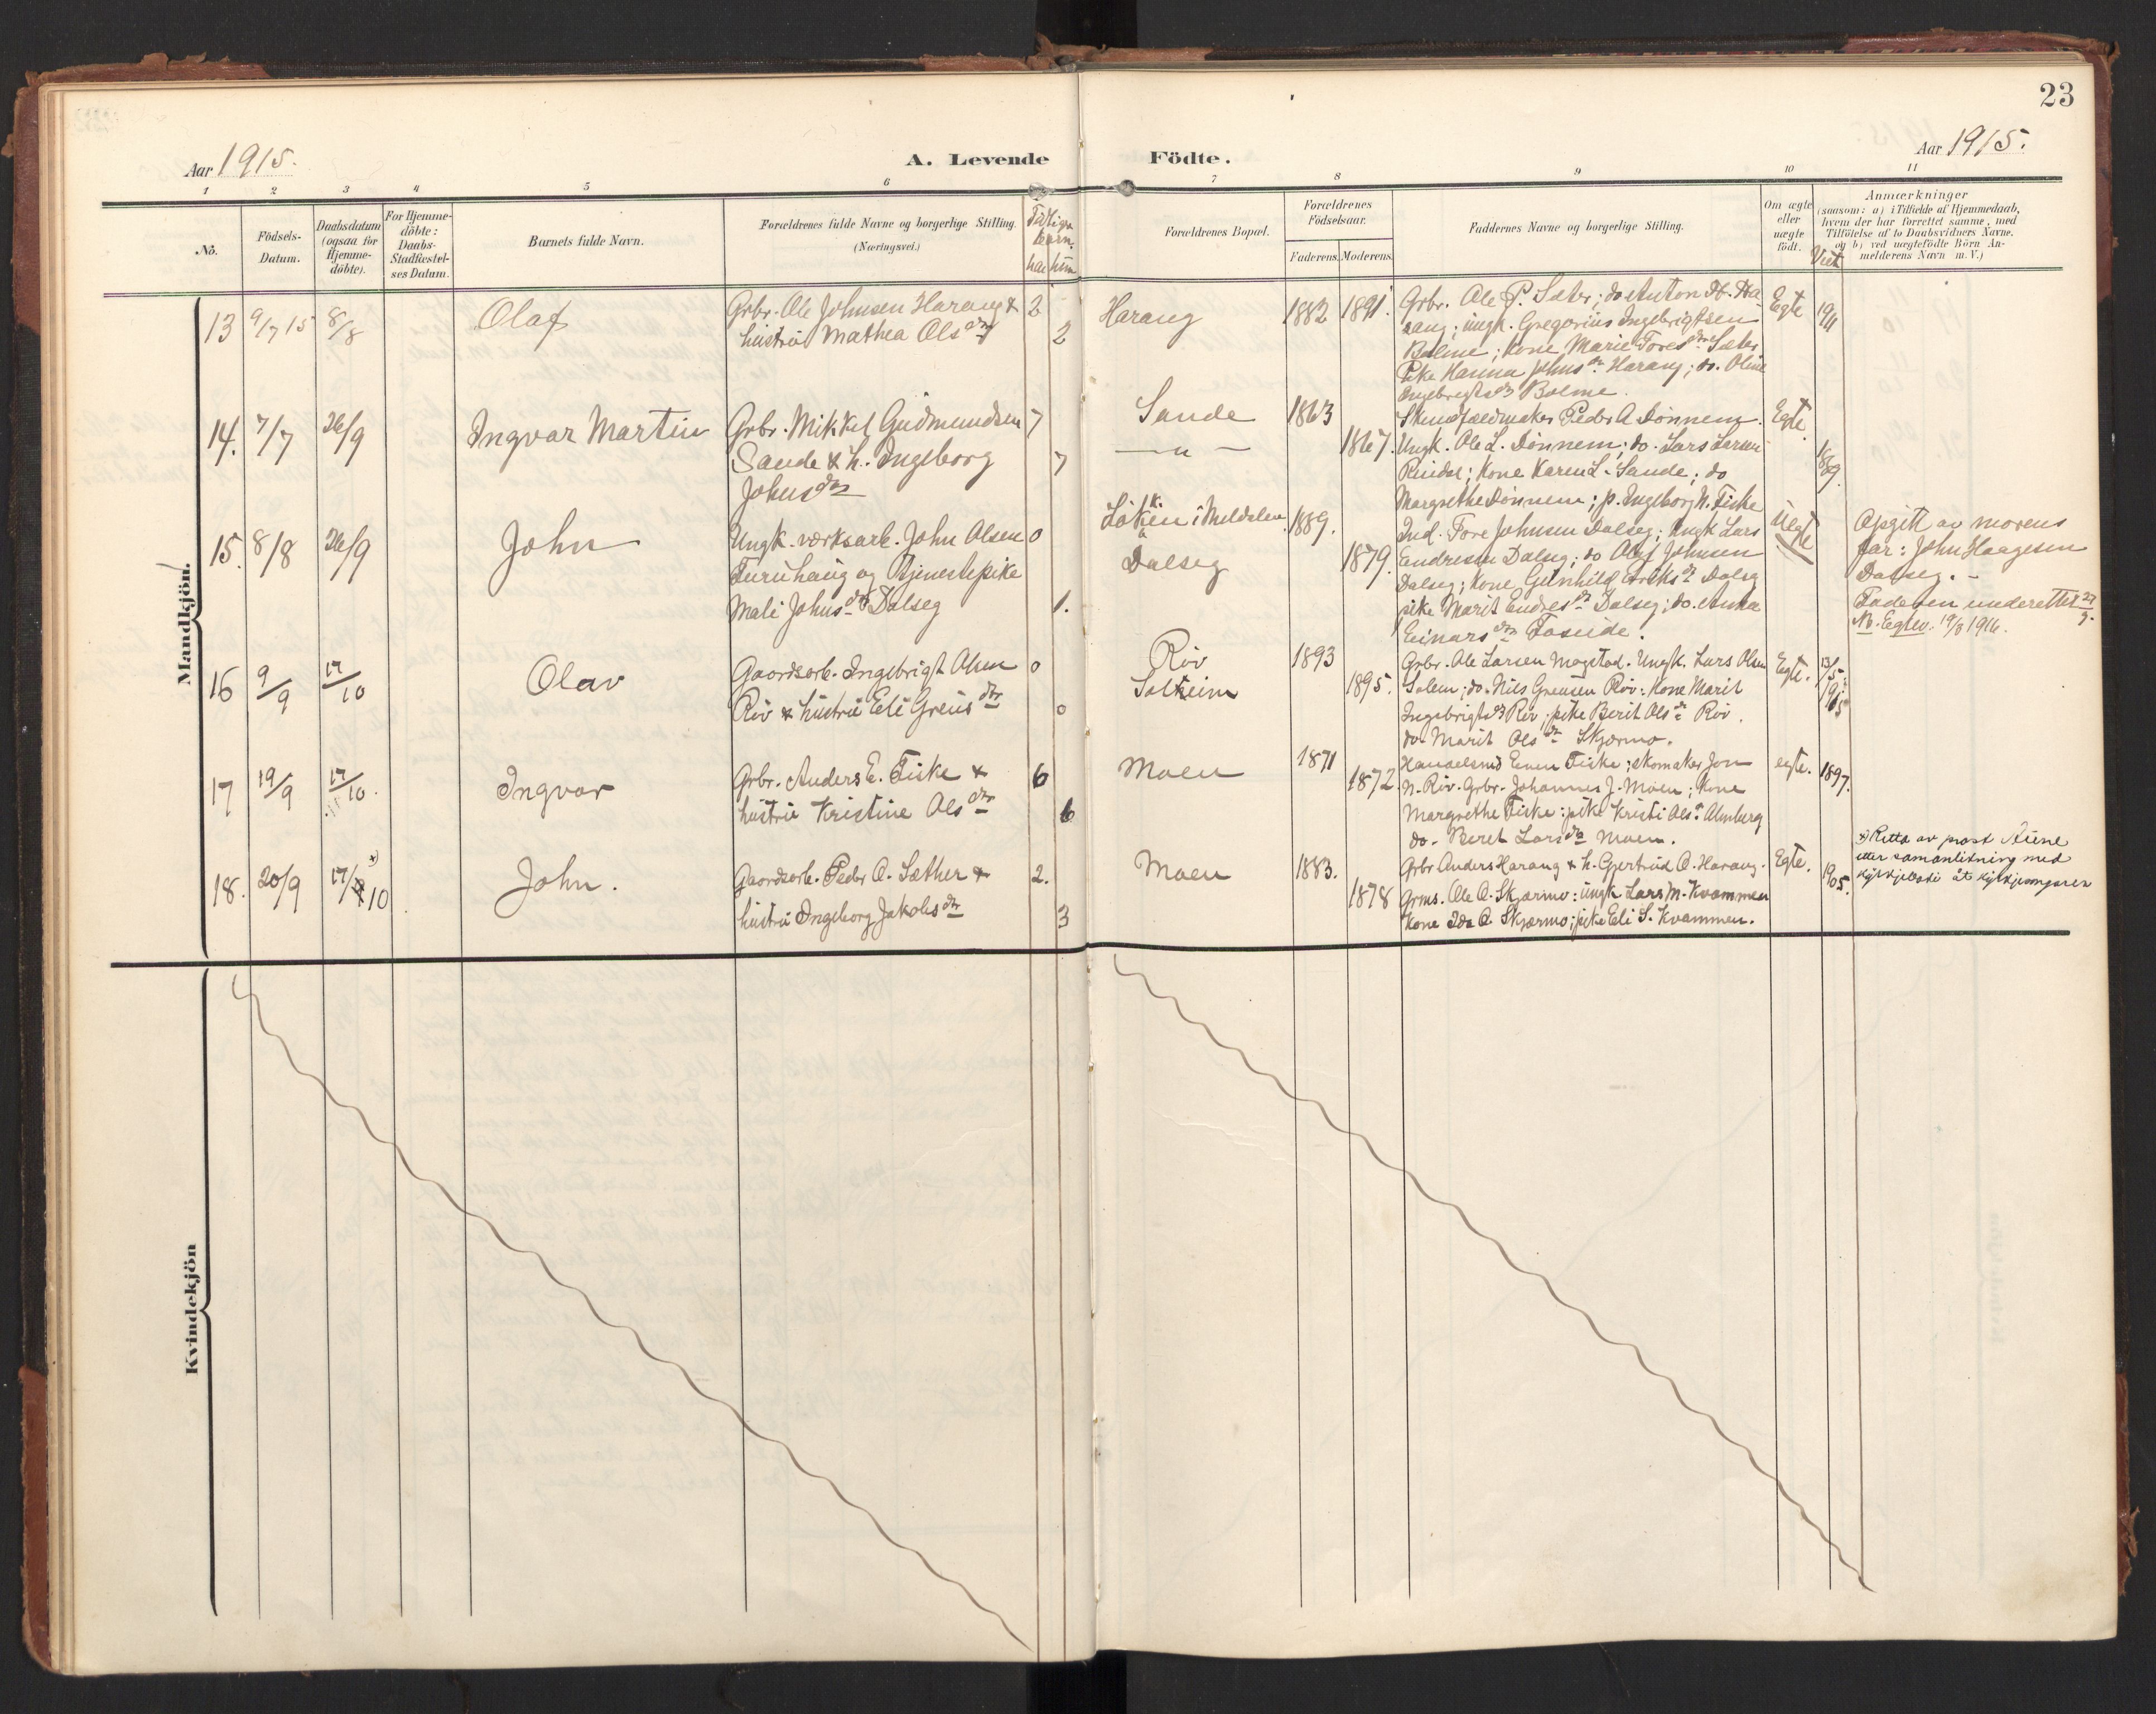 23
Aar 1915. A. Levende Födte. Aar 1915.
1 2 3 4 5 6 7 8 9 10 11
No.
Födsels-
Datum.
Daabsdatum
(ogsaa for
Hjemme-
döbte).
For Hjemme-
döbte:
Daabs-
Stadfæstel-
ses Datum.
Barnets fulde Navn.
Forældrenes fulde Navne og borgerlige Stilling.
(Næringsvei.)
Tidligere
barn.
han hun
Forældrenes Bopæl.
Forældrenes
Födselsaar.
Faderens. Moderens.
Faddernes Navne og borgerlige Stilling.
Om ægte
eller
uægte
født.
Viet
Anmærkninger
(saasom: a) i Tilfælde af Hjemmedaab,
hvem der har forrettet samme, med
Tilföielse af to Daabsvidners Navne.
og b) ved uægtefödte Börn An-
melderens Navn m. V.)
Mandkjön.
13 9/7 15 8/8 Olaf
Grbr. Ole Johnsen Harang & 2
hustru Mathea Olsdtr 2
Harang 1882 1891.
Grbr. Ole P. Sæter; do Anton Ha-
rang; ungk. Gregorius Ingebrigtsen
Bolme; kone Marie Toresdtr Sæter
Pike Hanna Johnsdtr Harang; do. Oline
Ingebrigtsdtr Bolme.
Egte 1911
14. 7/7 26/9 Ingvar Martin
Grbr. Mikkel Gudmundsen 7
Sande & h. Ingeborg 7
Johnsdtr
Sande 1863
— " — 1867.
Peder A Dønnem.
Ungk. Ole L. Dønnem; do. Lars Larsen
Rindal; kone Karen L. Sande; do
Margrethe Dønnem; p. Ingeborg N. Fiske
Egte
15. 8/8 26/9 John
Ungk. værksarb. John Olsen 0
Furuhaug og tjenestepike
Mali Johnsdtr Dalseg 1.
Løkken i Meldalen 1889.
Dalseg 1879.
Ind. Tore Johnsen Dalseg; Ungk Lars
Endresen Dalseg; do Johnsen
Dalseg; kone Gunhild Eriksdtr Dalseg
pike Marit Endresdtr Dalseg; do. Anna
Einarsdtr Foseide.
Uegte
Opgitt av morens
far: John Haagesen
Dalseg. -
Faderen underettet 27/9.
Nb. Egtev. 19/3 1916.
16 9/9 17/10 Olav
Gaardsarb. Ingebrigt Olsen 0
Røv & hustru Eli Greisdtr 0
Røv 1893
Solheim 1895.
Grbr. Ole Larsen Magstad. Ungk. Lars Olsen
Solem; do. Nils Greusen Røv: Kone Marit
Ingebrigtsdtr Røv; pike Berit Olsdtr Røv.
do. Marit Olsdtr Skjærmo.
Egte. 13/5 1915
17 19/9 17/10. Ingvar
Grbr. Anders E. Fiske & 6
hustru Kristine Olsdtr 6
Moen 1871
1872.
Handelsmd Even Fiske; skomaker Jon
N. Røv. Grbr. Johannes J. Moen; Kone
Margrethe Fiske: pike Kristi Olsdtr Almberg
do. Beret Larsdtr Moen.
egte. 1897.
18. 20/9 17/10 x) John.
Gaardsarb. Peder O. Sæther & 2.
hustru Ingeborg Jakobsdtr 3
Moen 1883.
1878
Grbr Anders Harang & h. Gjertrud O. Harang.
Grms. Ole O. Skjærmo: ungk Lars M. Kvammen
Kone Ida O. Skjærmo; pike Eli S. Kvammen.
Egte. 1905.
x) Retta av prost Aune
etter samanlikning med
kyrkjeboki åt kyrkjesongaren
Kvindekjön